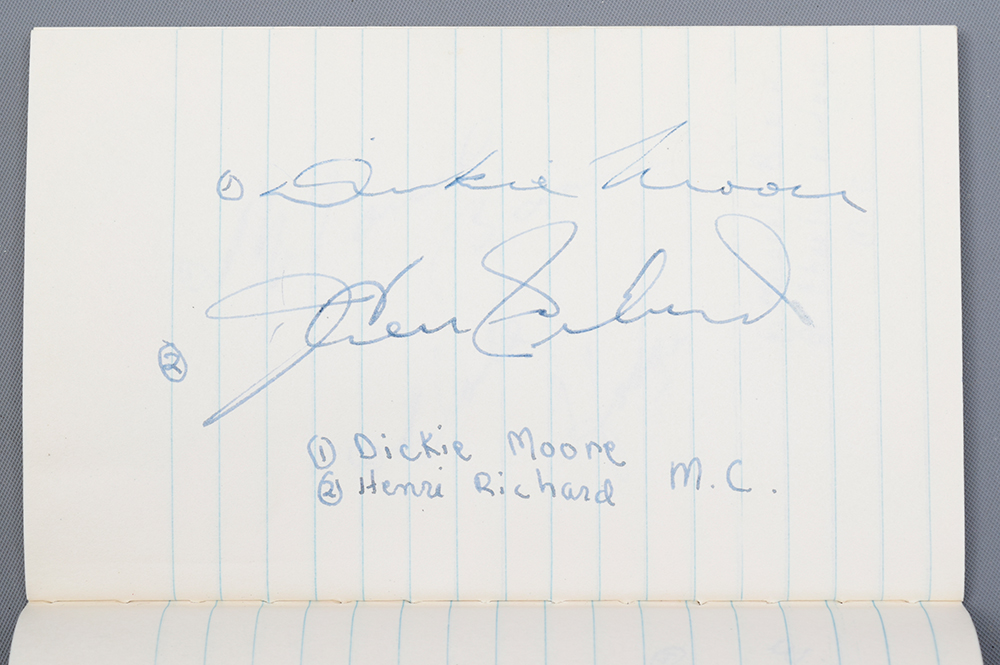 ① Dickie Moore
② Henri Richard
① Dickie Moore
② Henri Richard M.C.